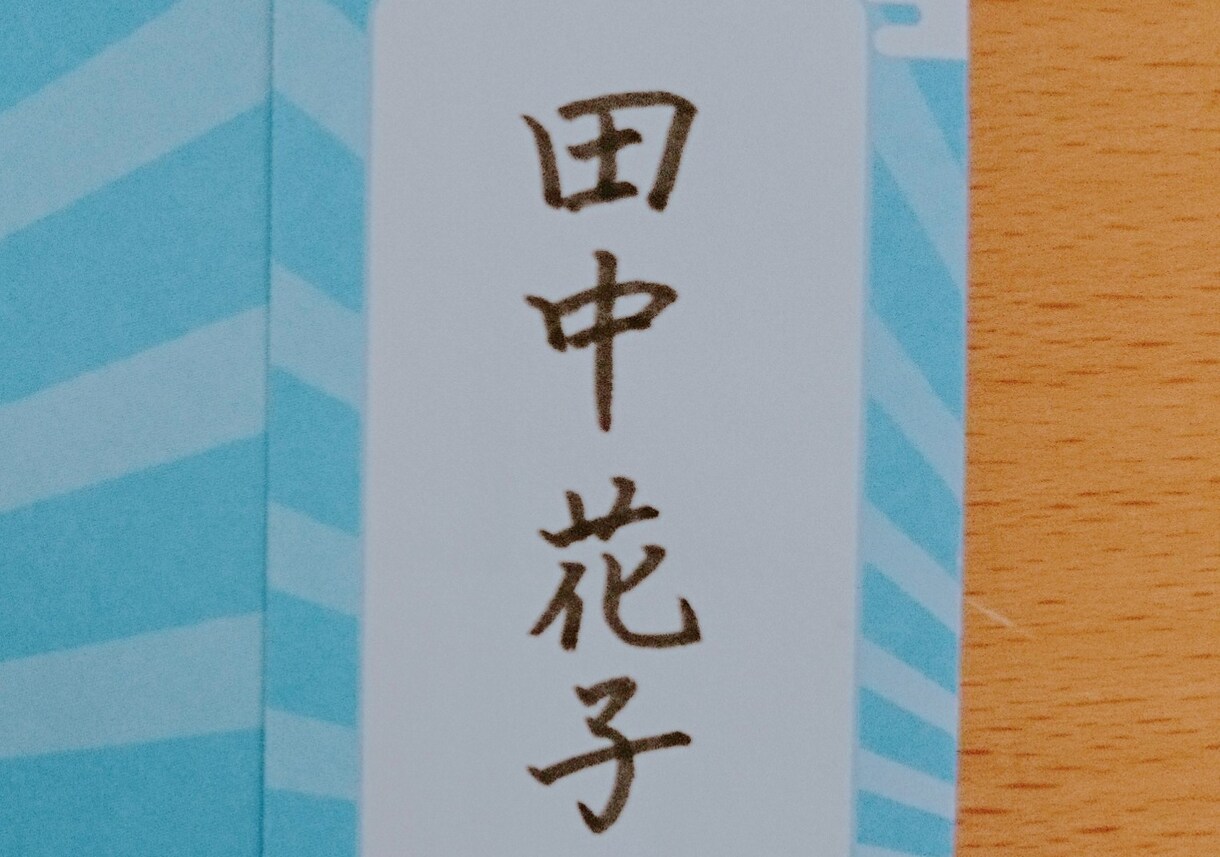 田中花子